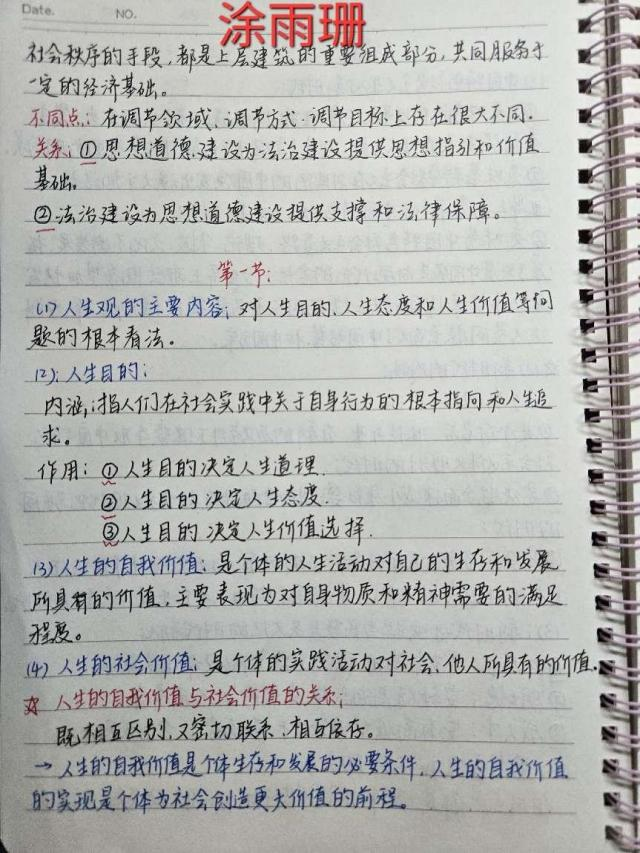 涂雨珊
Date.
NO.
社会秩序的手段，都是上层建筑的重要组成部分，共同服务于
一定的经济基础。
不同点：在调节领域、调节方式、调节目标上存在很大不同。
关系：①思想道德建设为法治建设提供思想指引和价值
基础。
②法治建设为思想道德建设提供支撑和法律保障。
第一节：
(1)人生观的主要内容：对人生目的、人生态度和人生价值等问
题的根本看法。
(2)：人生目的：
内涵：指人们在社会实践中关于自身行为的根本指向和人生追
求。
作用：①人生目的决定人生道理.
②人生目的决定人生态度.
③人生目的决定人生价值选择.
(3)人生的自我价值：是个体的人生活动对自己的生存和发展
所具有的价值，主要表现为对自身物质和精神需要的满足
程度。
(4)人生的社会价值：是个体的实践活动对社会、他人所具有的价值.
☆人生的自我价值与社会价值的关系：
既相互区别，又密切联系，相互依存。
→人生的自我价值是个体生存和发展的必要条件，人生的自我价值
的实现是个体为社会创造更大价值的前程。